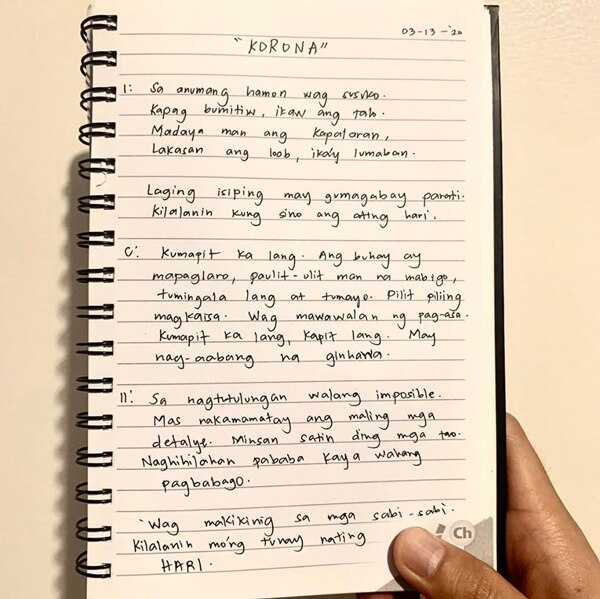 03-13-'20
"KORONA"
I: Sa anumang hamon wag susuko.
Kapag bumitiw, ikaw ang talo.
Madaya man ang kapalaran,
Lakasan ang loob, ika'y lumaban.
Laging isiping may gumagabay parati.
Kilalanin kung sino ang ating hari.
C: Kumapit ka lang. Ang buhay ay
mapaglaro, paulit-ulit man na mabigo,
tumingala lang at tumayo. Pilit piliing
magkaisa. Wag mawawalan ng pag-asa.
Kumapit ka lang, kapit lang. May
nag-aabang na ginhawa.
II: Sa nagtutulungan walang imposible.
Mas nakamamatay ang maling mga
detalye. Minsan satin ding mga tao.
Naghihilahan pababa kaya walang
pagbabago.
'Wag makikinig sa mga sabi-sabi.
Kilalanin mo'ng tunay nating
HARI.
Ch